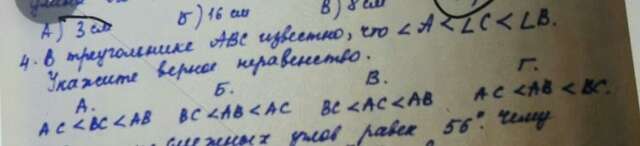 А) 3 см Б) 16 см В) 8 см
4. В треугольнике ABC известно, что ∠A < ∠C < ∠B.
Укажите верное неравенство.
А. Б. В. Г.
AC < BC < AB BC < AB < AC BC < AC < AB AC < AB < BC.
смежных углов равен 56°. Чему